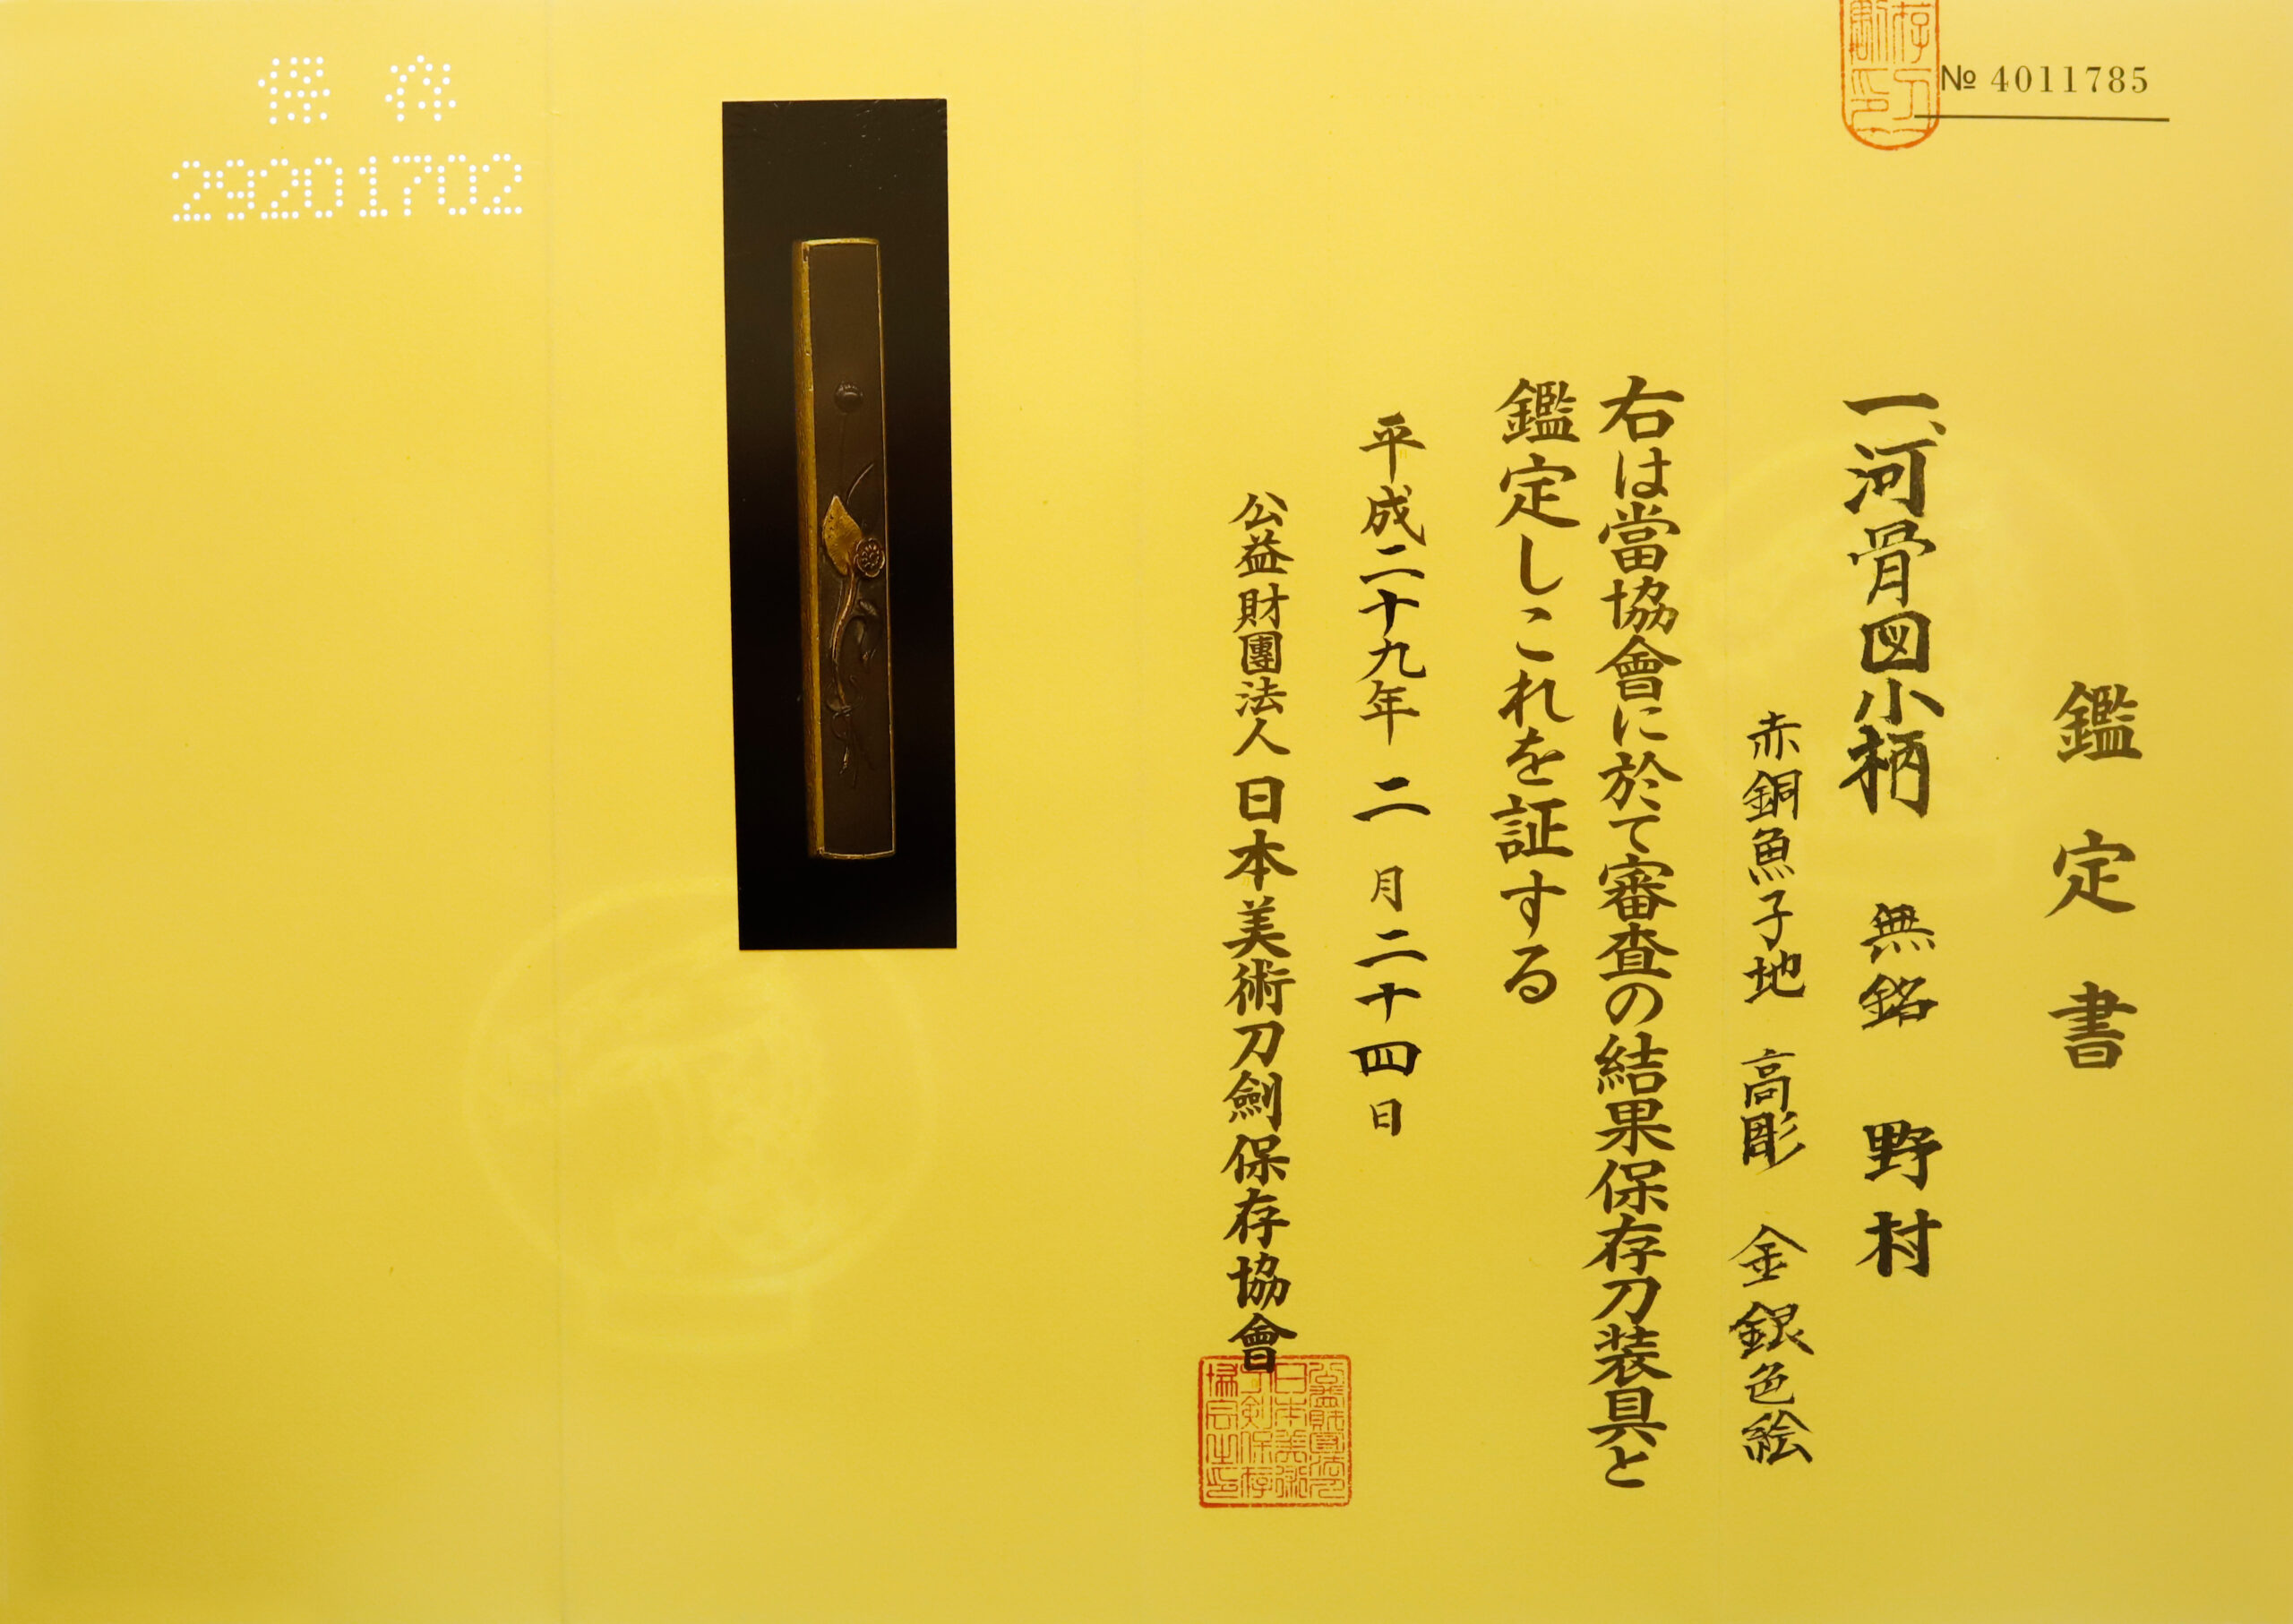 № 4011785
鑑定書
一、河骨図小柄 無銘 野村
赤銅魚子地 高彫 金銀色絵
右は當協會に於て審査の結果保存刀装具と
鑑定しこれを証する
平成二十九年 二 月二十四日
公益財團法人 日本美術刀劍保存協會
保存
29201702